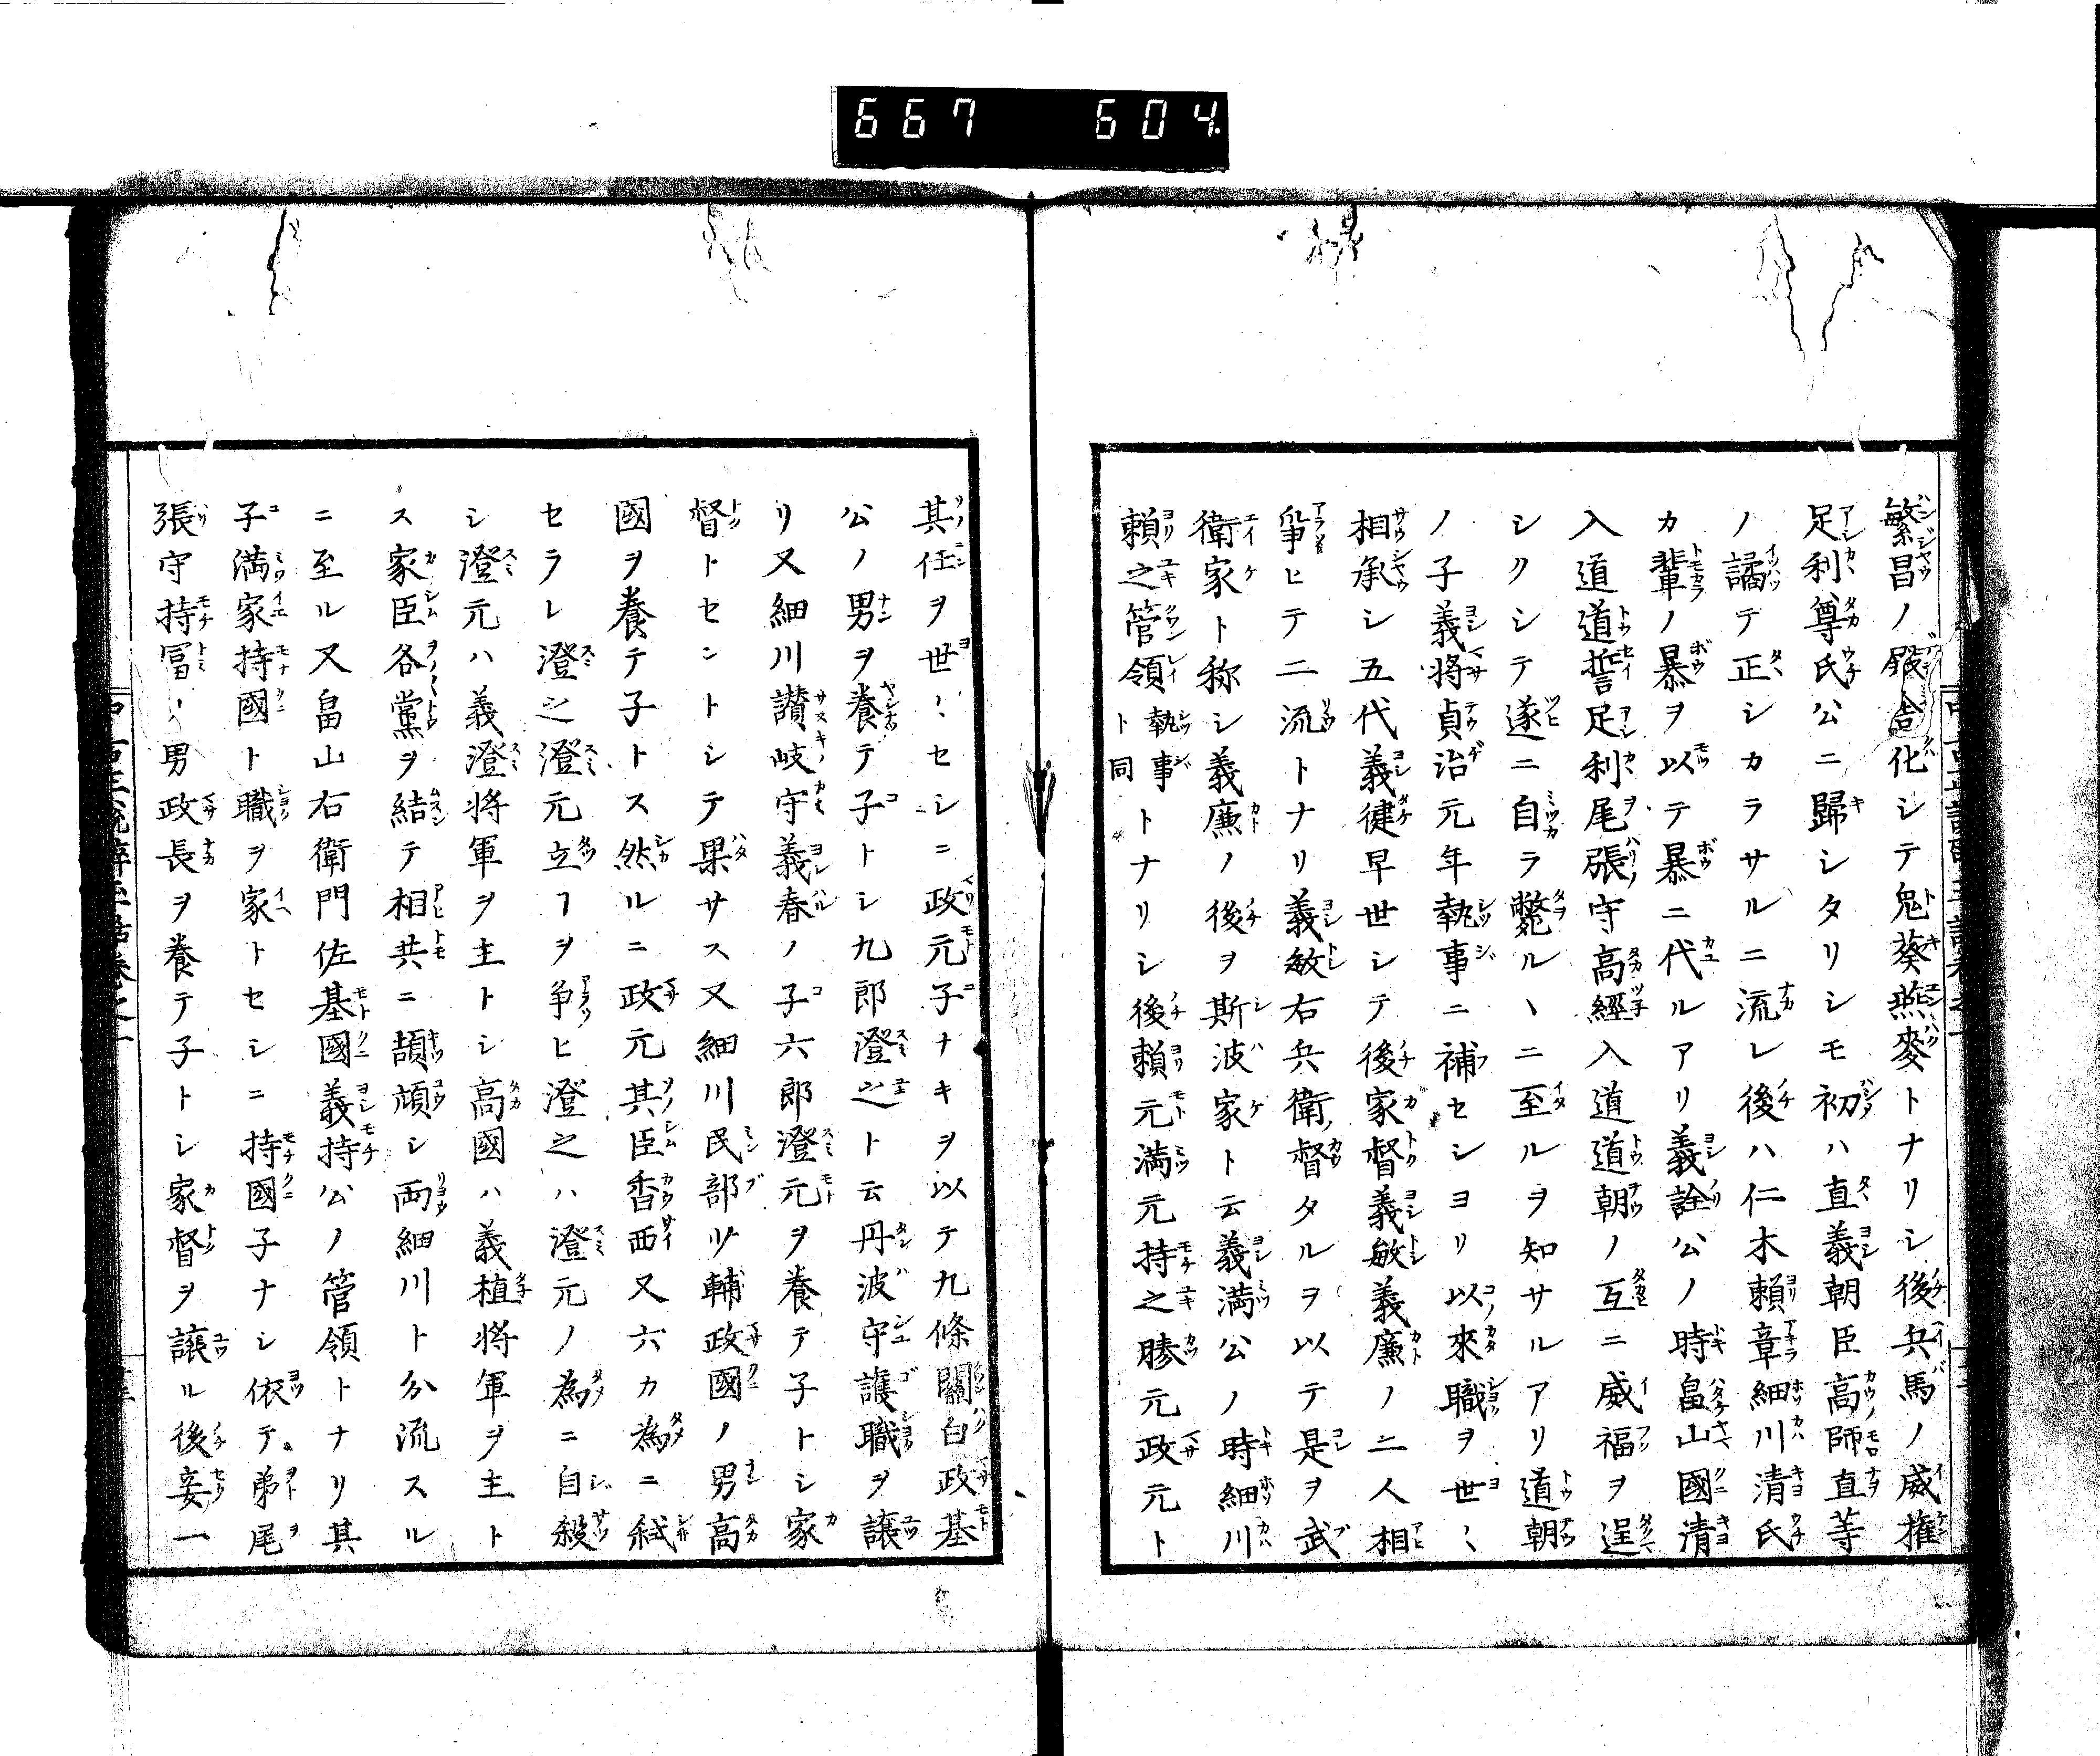 667 604
繁昌ノ殿舎化シテ鬼葵燕麥トナリシ後兵馬ノ威権
足利尊氏公ニ歸シタリシモ初ハ直義朝臣高師直等
ノ譎テ正シカラサルニ流レ後ハ仁木頼章細川清氏
カ輩ノ暴ヲ以テ暴ニ代ルアリ義詮公ノ時畠山國清
入道道誓足利尾張守高經入道道朝ノ互ニ威福ヲ逞
シクシテ遂ニ自ラ斃ルヽニ至ルヲ知サルアリ道朝
ノ子義将貞治元年執事ニ補セシヨリ以來職ヲ世ヽ
相承シ五代義健早世シテ後家督義敏義廉ノ二人相
爭ヒテ二流トナリ義敏右兵衛督タルヲ以テ是ヲ武
衛家ト称シ義廉ノ後ヲ斯波家ト云義満公ノ時細川
頼之管領執事ト同トナリシ後頼元満元持之勝元政元ト
其任ヲ世ヽセシニ政元子ナキヲ以テ九條關白政基
公ノ男ヲ養テ子トシ九郎澄之ト云丹波守護職ヲ譲
リ又細川讃岐守義春ノ子六郎澄元ヲ養テ子トシ家
督トセントシテ果サス又細川民部少輔政國ノ男高
國ヲ養テ子トス然ルニ政元其臣香西又六カ為ニ弑
セラレ澄之澄元立フヲ争ヒ澄之ハ澄元ノ為ニ自殺
シ澄元ハ義澄将軍ヲ主トシ高國ハ義植将軍ヲ主ト
ス家臣各黨ヲ結テ相共ニ頡頏シ両細川ト分流スル
ニ至ル又畠山右衛門佐基國義持公ノ管領トナリ其
子満家持國ト職ヲ家トセシニ持國子ナシ依テ弟尾
張守持冨ノ男政長ヲ養テ子トシ家督ヲ譲ル後妾一